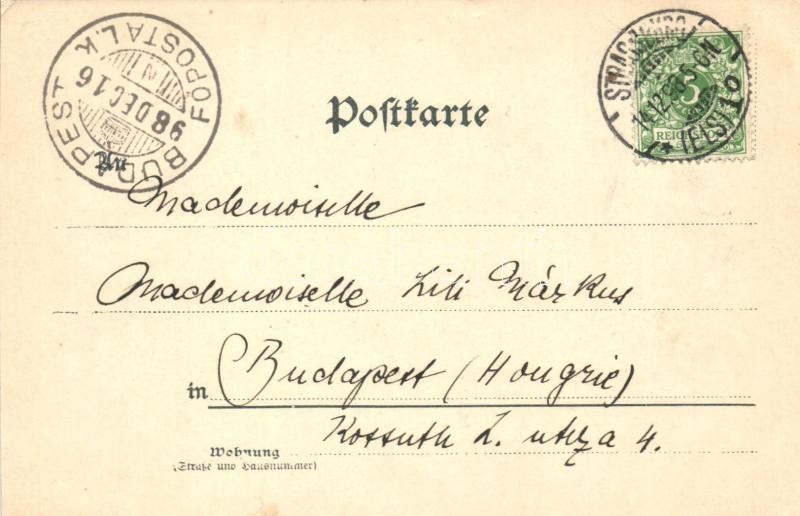 BUDAPEST FŐPOSTA L.K.
98 DEC 16
N
STRASSBURG
(ELS) 10
REICHSPOST
Postkarte
An
Mademoiselle
Mademoiselle Lili Márkus
in Budapest (Hongrie)
Kossuth L. utcza 4.
Wohnung
(Straße und Hausnummer)